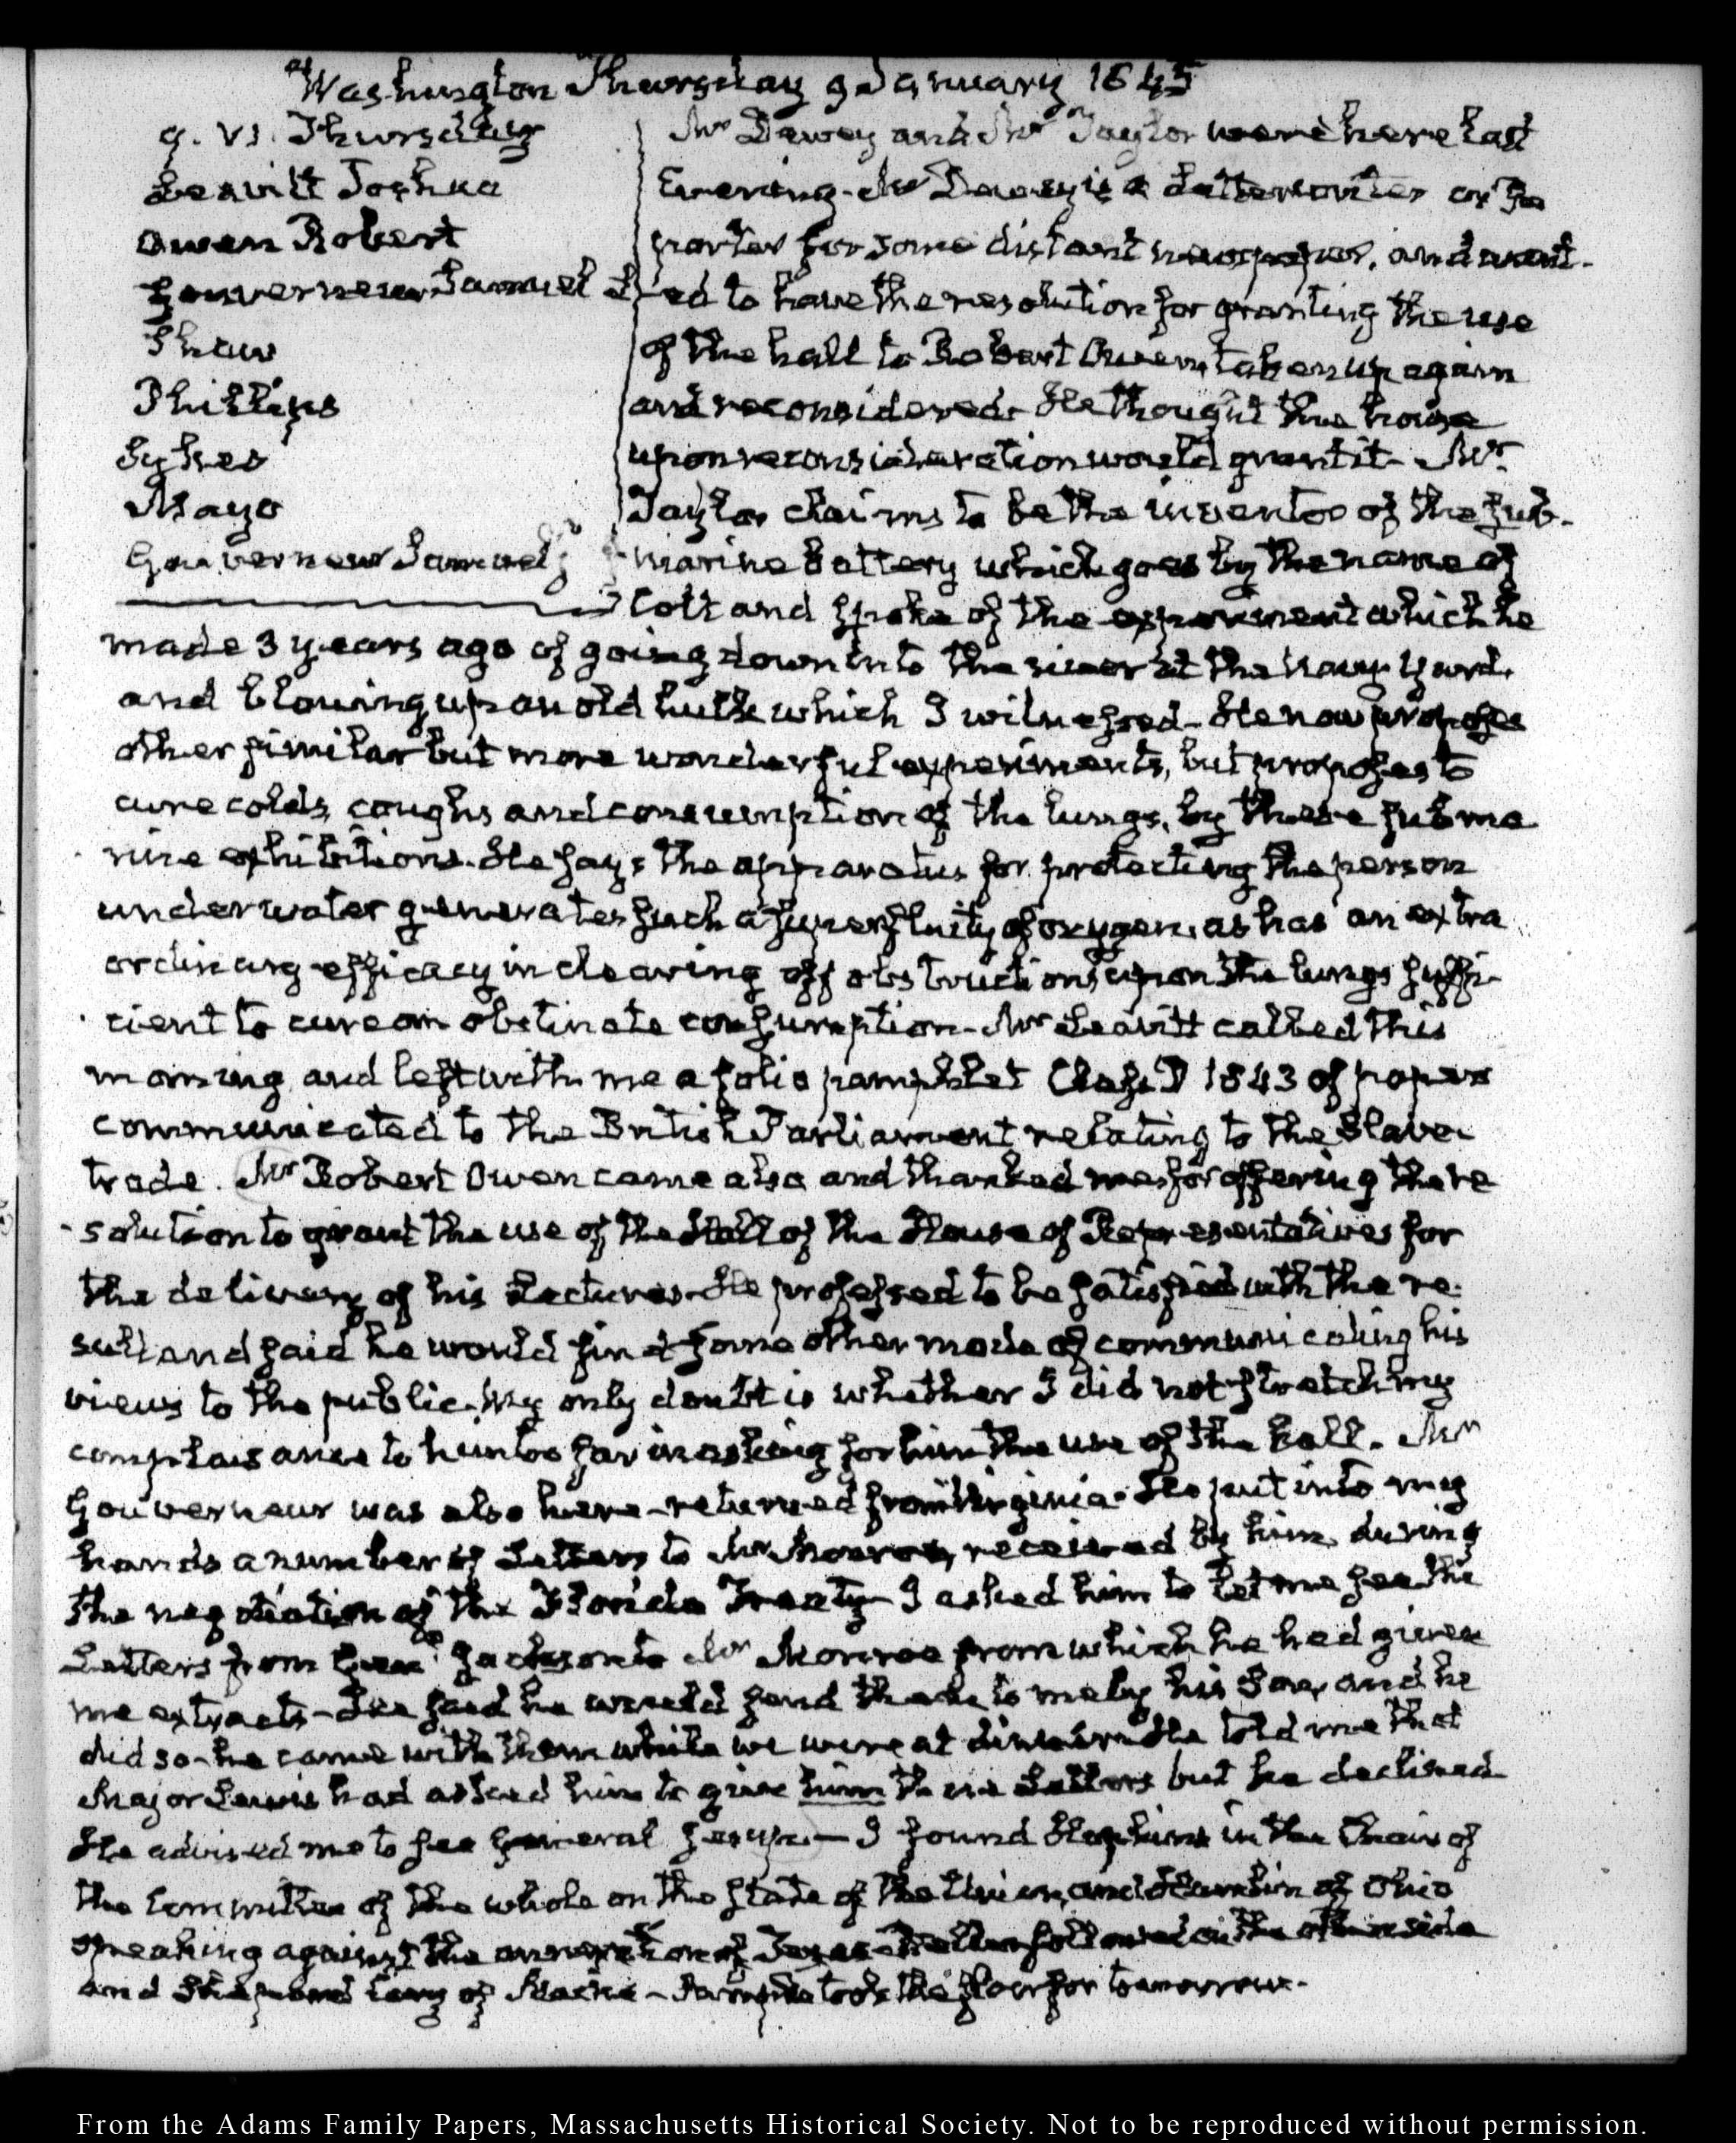 Washington Thursday 9 January 1845
9. VI. Thursday
Leavitt Joshua
Owen Robert
Gouverneur Samuel L
Shaw
Phillips
Sykes
Mayo
Gouverneur Samuel Jr
Mr Dewey and Mr Taylor were here last
Evening. Mr Dewey is a Letter writer or Re
porter for some distant newspaper, and want-
ed to have the resolution for granting the use
of the hall to Robert Owen, taken up again
and reconsidered. He thought the house
upon reconsideration would grant it. Mr
Taylor claims to be the inventor of the sub-
marine battery which goes by the name of
Colt and spoke of the experiment which he
made 3 years ago of going down into the river at the Navy Yard,
and blowing up an old hulk which I witnessed. He now proposes
other similar but more wonderful experiments, but proposes to
cure colds, coughs and consumption of the lungs, by these subma
rine exhibitions. He says the apparatus for protecting the person
under water generates such a superfluity of oxygen, as has an extra
ordinary efficacy in clearing off obstructions upon the lungs suffi-
cient to cure an obstinate consumption. Mr Leavitt called this
morning and left with me a folio pamphlet Class D 1843 of papers
communicated to the British Parliament relating to the Slave
trade. Mr Robert Owen came also and thanked me for offering the re
solution to grant the use of the Hall of the House of Representatives for
the delivery of his Lectures. He professed to be satisfied with the re-
sult and said he would find some other mode of communicating his
views to the public. My only doubt is whether I did not stretch my
complaisance to him too far in asking for him the use of the hall. Mr
Gouverneur was also here - returned from Virginia. He put into my
hands a number of Letters to Mr Monroe, received by him during
the negotiation of the Florida Treaty - I asked him to let me see the
Letters from Genl Jackson to Mr Monroe from which he had given
me extracts - He said he would send them to me by his Son, and he
did so - he came with them while we were at dinner. He told me that
Major Lewis had asked him to give him the Letters but he declined
He advised me to see General Jesup. - I found Hopkins in the Chair of
the Committee of the whole on the State of the Union, and of Ohio
speaking against the annexation of Texas followed on the other side
and Shepard Cary of Maine - took the floor for tomorrow.
From the Adams Family Papers, Massachusetts Historical Society. Not to be reproduced without permission.